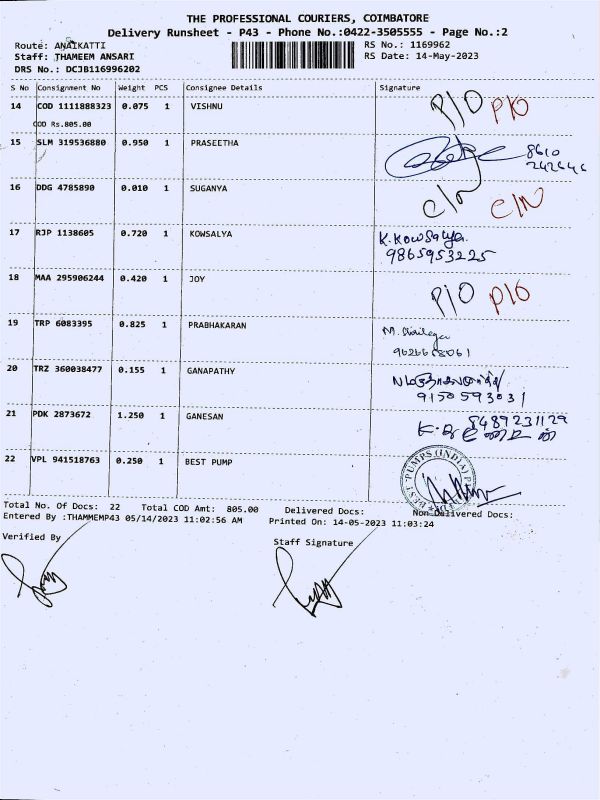 THE PROFESSIONAL COURIERS, COIMBATORE
Delivery Runsheet - P43 - Phone No.:0422-3505555 - Page No.:2
Route: ANAIKATTI RS No.: 1169962
Staff: THAMEEM ANSARI RS Date: 14-May-2023
DRS No.: DCJB116996202
S No Consignment No Weight PCS Consignee Details Signature
14 COD 1111888323 0.075 1 VISHNU P/O P/O
COD Rs.805.00
15 SLM 319536880 0.950 1 PRASEETHA 8610
242646
16 DDG 4785890 0.010 1 SUGANYA C/N C/N
17 RJP 1138605 0.720 1 KOWSALYA K. Kowsalya.
9865953225
18 MAA 295906244 0.420 1 JOY P/O P/O
19 TRP 6083395 0.825 1 PRABHAKARAN
20 TRZ 360038477 0.155 1 GANAPATHY
9150593031
21 PDK 2873672 1.250 1 GANESAN 8489231129
22 VPL 941518763 0.250 1 BEST PUMP BEST PUMPS (INDIA)
Total No. Of Docs: 22 Total COD Amt: 805.00 Delivered Docs: Non Delivered Docs:
Entered By :THAMMEMP43 05/14/2023 11:02:56 AM Printed On: 14-05-2023 11:03:24
Verified By Staff Signature